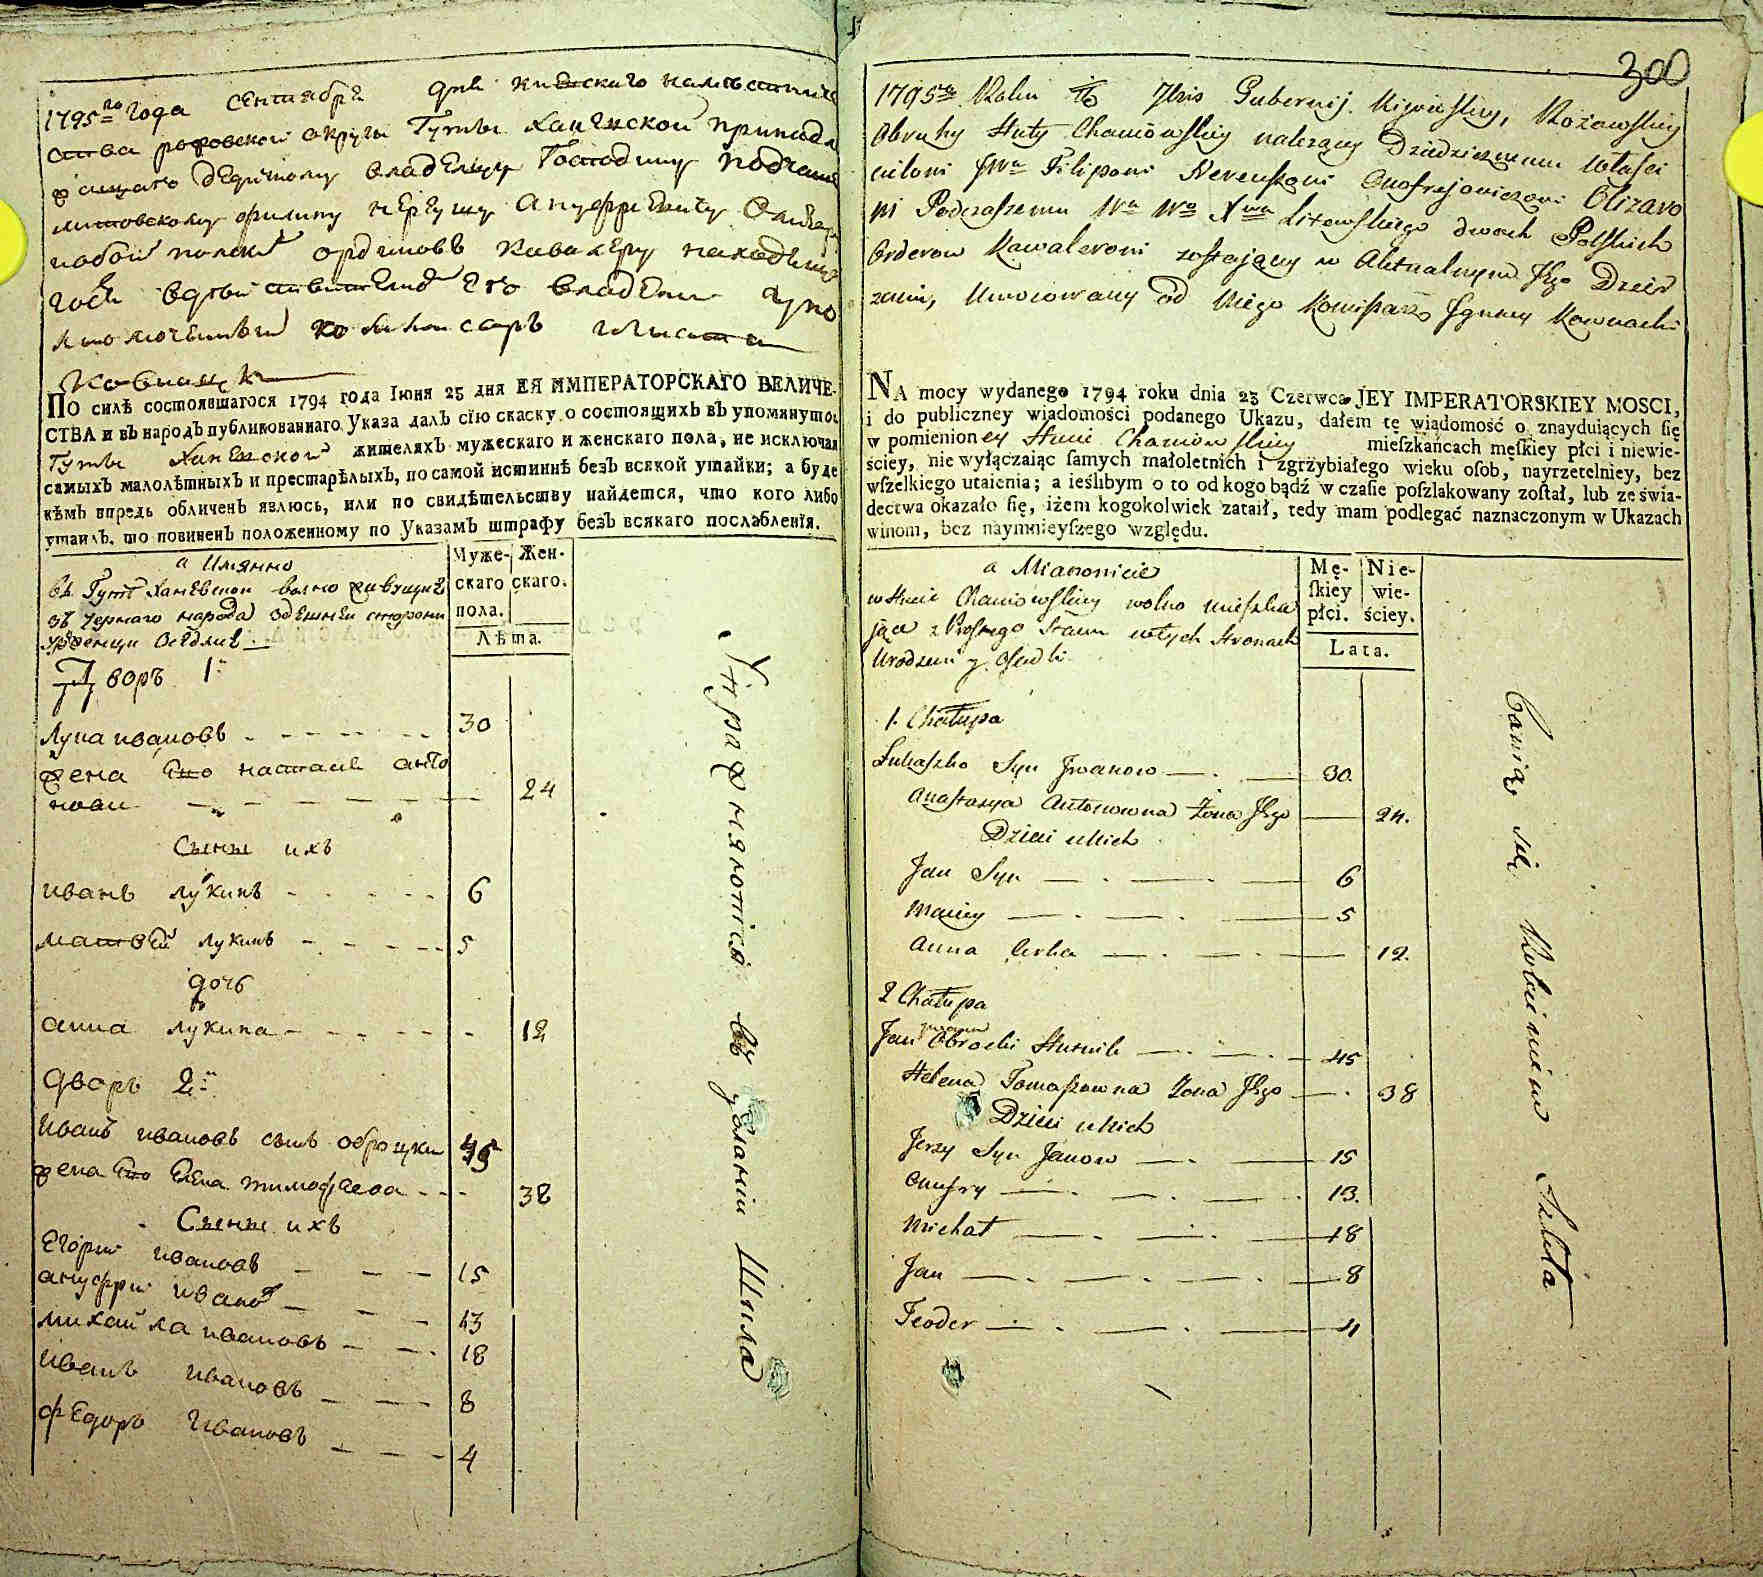 1795го года сентября дня киевскаго намѣстниче
ства радовской округи Гуты Ханевской принадл
ежащаго дедичному владельцу Господину подчаше
литовскому филипу нереушу ануфриевичу Олиза
полскихъ ординовъ кавалеру находящо
гося его владении упо
лномоченный коммисаръ
По силѣ состоявшагося 1794 года Іюня 25 дня ЕЯ ИМПЕРАТОРСКАГО ВЕЛИЧЕ-
СТВА и въ народъ публикованнаго Указа далъ сїю скаску о состоящихъ въ упомянутой
Гуты Ханевской жителяхъ мужескаго и женскаго пола, не исключая
самыхъ малолѣтныхъ и престарѣлыхъ, по самой истиннѣ безъ всякой утайки; а буде
кѣмъ впредь обличенъ явлюсь, или по свидѣтельству найдется, что кого либо
утаилъ, то повиненъ положенному по Указамъ штрафу безъ всякаго послабленїя.
а Имянно
Муже-
скаго
пола.
Жен-
скаго.
Лѣта.
въ Гутѣ Ханевской волно живущие
зъ чернаго народа здешней стороны
уроженцы
Дворъ 1й
Лука ивановъ 30
жена его настасія анто
нова 24
Сыны ихъ
иванъ лукинъ 6
матвей лукинъ 5
дочь
анна лукина 12
дворъ 2й
иванъ ивановъ сынъ оброцки 45
жена его елена тимофѣева 38
Сыны ихъ
Егорій ивановъ 15
ануфрій иванов 13
михайла ивановъ 18
иванъ ивановъ 8
федоръ ивановъ 4
Упражняются въ деланіи Шкла
300
1795го Roku 7bris Gubernij Kijowskiey, Rożawskiey
Obruhy Huty Chaniowskiey należący Dziedzicznemu właści
cielowi JWu Filipowi Nereuszowi Onofryjowiczowi Olizaro
wi Podczaszemu Wu Wo Xwa Litewskiego dwoch Polskich
Orderow Kawalerowi zostaiący w Aktualnym Jego Dzier
żeniu, Umocowany od Niego Komissarz Jgnacy Kownacki
NA mocy wydanego 1794 roku dnia 23 Czerwca JEY IMPERATORSKIEY MOSCI,
i do publiczney wiadomości podanego Ukazu, dałem tę wiadomość o znayduiących się
w pomienioney Hucie Chaniowskiey mieszkańcach męskiey płci i niewie-
ściey, nie wyłączaiąc samych małoletnich i zgrzybiałego wieku osob, nayrzetelniey, bez
wszelkiego utaienia; a ieślibym o to od kogo bądź w czasie poszlakowany został, lub ze świa-
dectwa okazało się, iżem kogokolwiek zataił, tedy mam podlegać naznaczonym w Ukazach
winom, bez naymnieyszego względu.
a Mianowicie
Mę-
skiey
płci.
Nie-
wie-
ściey.
Lata.
w Hucie Chaniowskiey wolno mieszka
jące z Prostego Stanu w tych Stronach
Urodzeni y Osiedli
1. Chałupa
Łukaszko Syn Jwanow 30
Anastazya Antonowna Żona Jego 24.
Dzieci u Nich
Jan Syn 6
Maciey 5
Anna Corka 12.
2 Chałupa
Jan Obrocki Hutnik 45
Helena Tomaszowna Żona Jego 38
Dzieci u Nich
Jerzy Syn Janow 15
Onufry 13.
Michał 18
Jan 8
Teodor 4
Bawią się Robieniem Szkła